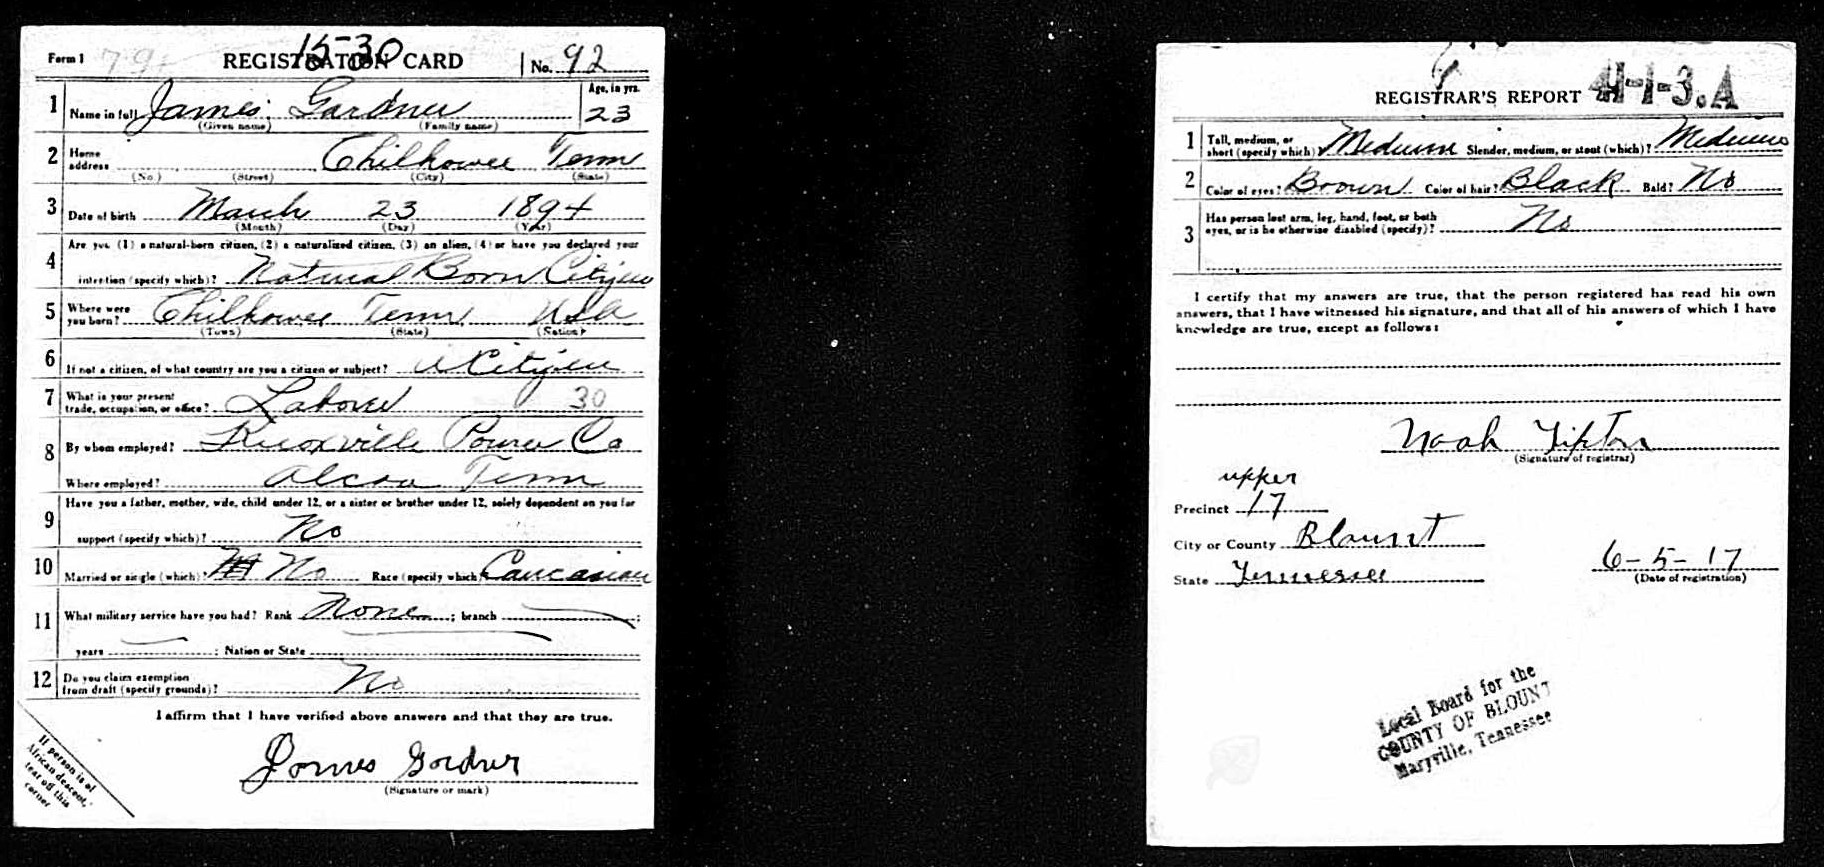 Form 1 79 REGISTRATION CARD No. 92
15-30
1 Name in full James Gardner Age, in yrs. 23
(Given name) (Family name)
2 Home address Chilhowee Tenn
(No.) (Street) (City) (State)
3 Date of birth March 23 1894
(Month) (Day) (Year)
4 Are you (1) a natural-born citizen, (2) a naturalized citizen, (3) an alien, (4) or have you declared your
intention (specify which)? Natural Born Citizen
5 Where were you born? Chilhowee Tenn USA
(Town) (State) (Nation)
6 If not a citizen, of what country are you a citizen or subject? a Citizen
7 What is your present trade, occupation, or office? Laborer 30
8 By whom employed? Knoxville Power Co
Where employed? Alcoa Tenn
9 Have you a father, mother, wife, child under 12, or a sister or brother under 12, solely dependent on you for
support (specify which)? No
10 Married or single (which)? No Race (specify which)? Caucasian
11 What military service have you had? Rank None ; branch ;
years ; Nation or State
12 Do you claim exemption from draft (specify grounds)? No
I affirm that I have verified above answers and that they are true.
James Gardner
(Signature or mark)
If person is of
African descent,
tear off this
corner
REGISTRAR'S REPORT 41-1-3.A
1 Tall, medium, or short (specify which)? Medium Slender, medium, or stout (which)? Medium
2 Color of eyes? Brown Color of hair? Black Bald? No
3 Has person lost arm, leg, hand, foot, or both
eyes, or is he otherwise disabled (specify)? No
I certify that my answers are true, that the person registered has read his own
answers, that I have witnessed his signature, and that all of his answers of which I have
knowledge are true, except as follows:
Noah Tipton
(Signature of registrar)
upper
Precinct 17
City or County Blount
State Tennessee
6-5-17
(Date of registration)
Local Board for the
COUNTY OF BLOUNT
Maryville, Tennessee